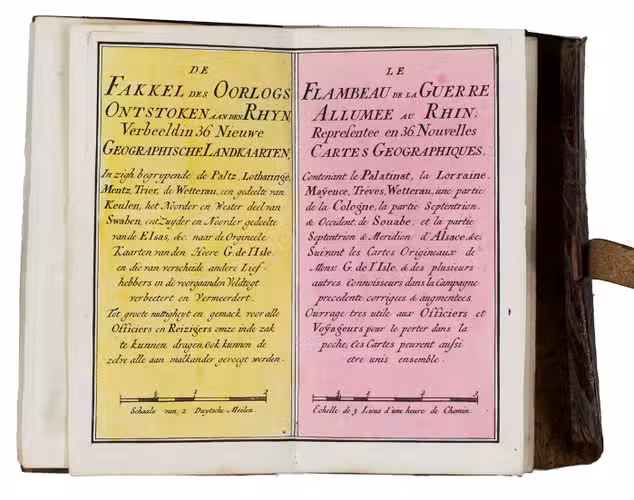 DE
FAKKEL DES OORLOGS
ONTSTOKEN AAN DEN RHYN
Verbeeld in 36 Nieuwe
GEOGRAPHISCHE LANDKAARTEN,
In zigh begrypende de Paltz, Lotharinge,
Mentz, Trier, de Wetterau, een gedeelte van
Keulen, het Noorder en Wester deel van
Swaben, ent Zuyder en Noorder gedeelte
van de Elsas, &c. naar de Orgineele
Kaarten van den Heere G. de l'Isle
en die van verscheide andere Lief-
hebbers in de voorgaanden Veldtogt
verbetert en Vermeerdert.
Tot groote nuttigheyt en gemack voor alle
Officiers en Reizigers omze inde zak
te kunnen dragen, Ook kunnen de
zelve alle aan malkander gevoegt werden.
1 2 3
Schaale van 2 Duytsche Meilen.
LE
FLAMBEAU DE LA GUERRE
ALLUMEE AU RHIN;
Representee en 36 Nouvelles
CARTES GEOGRAPHIQUES,
Contenant le Palatinat, la Lorraine,
Mayence, Treves, Wetterau, une partie
de la Cologne, la partie Septentrion.
& Occident. de Souabe, et la partie
Septentrion & Meridion d'Alsace, &c.
Suivant les Cartes Origineaux de
Mons.r G. de l'Isle, & des plusieurs
autres Connoisseurs dans la Campagne
precedente corrigées & augmentées.
Ouvrage tres utile aux Officiers et
Voyageurs pour le porter dans la
poche, Ces Cartes peuvent aussi
etre unis ensemble.
1 2 3
Echelle de 3 Lieus d'une heure de Chemin.